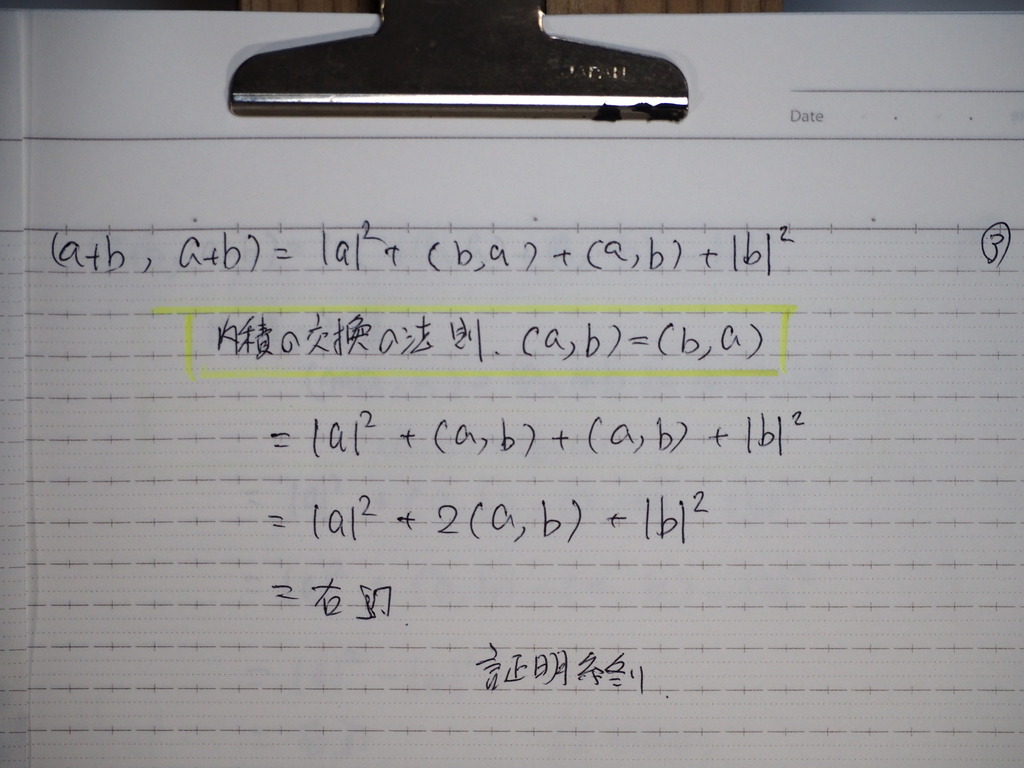 JAPAN
Date
(a+b, a+b) = |a|² + (b,a) + (a,b) + |b|² ③
内積の交換の法則. (a,b)=(b,a)
= |a|² + (a,b) + (a,b) + |b|²
= |a|² + 2(a,b) + |b|²
= 右辺
証明終り.